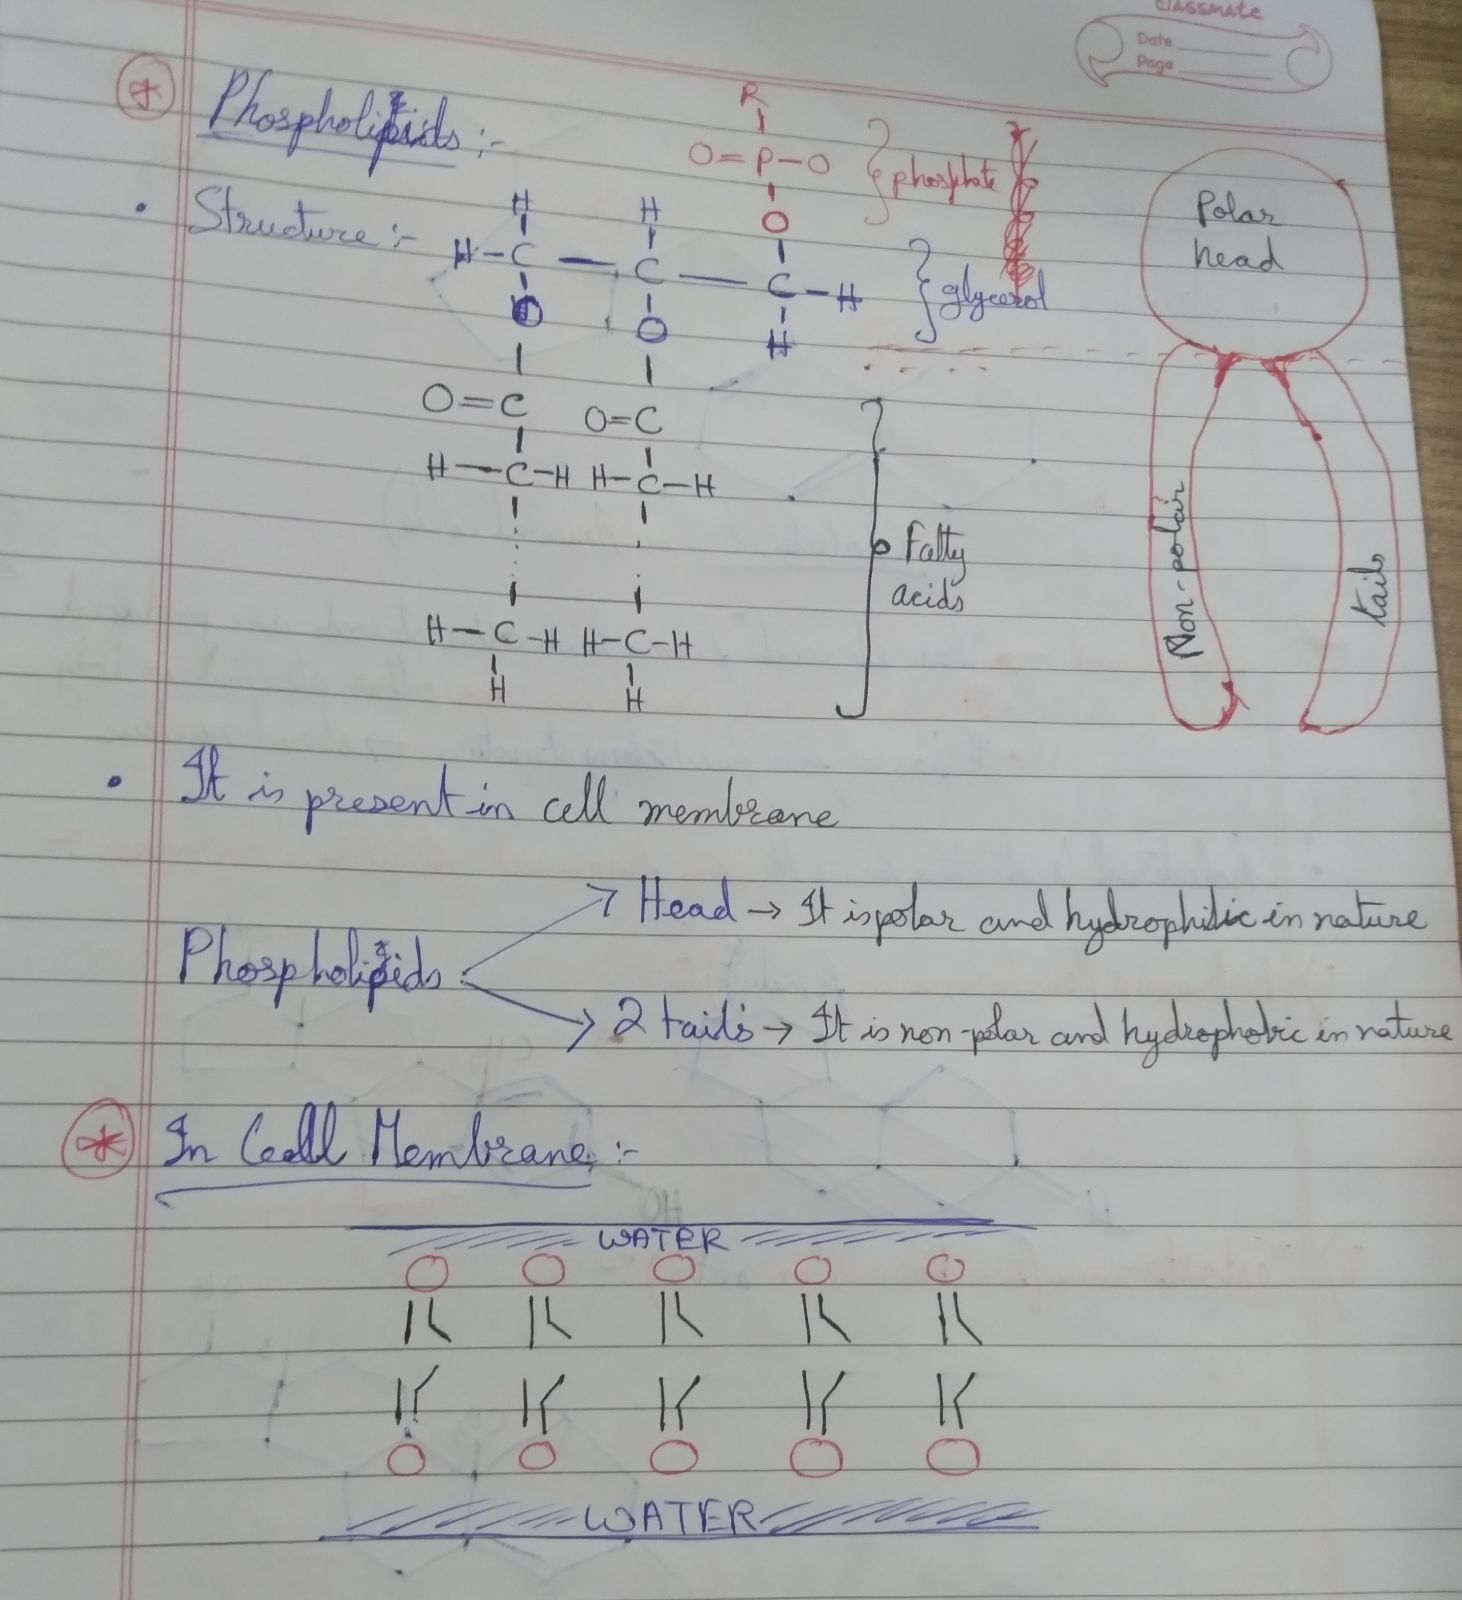 classmate
Date
Page
Phospholipids :-
R
O=P-O } phosphate
O
• Structure :-
H H
H-C — C — C-H } glycerol
O O H
O=C O=C
H-C-H H-C-H
H-C-H H-C-H
H H
Fatty
acids
Polar
head
Non-polar
tails
• It is present in cell membrane
Phospholipids
Head → It is polar and hydrophilic in nature
2 tails → It is non-polar and hydrophobic in nature
In Cell Membrane :-
WATER
WATER